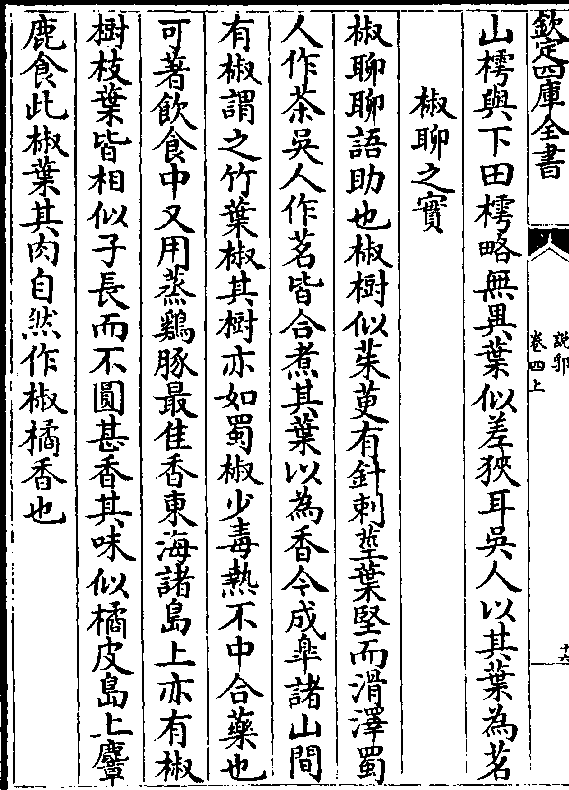 欽定四庫全書
說郛
卷四上
十六
山樗與下田樗略無異葉似差狹耳吳人以其葉為茗
椒聊之實
椒聊聊語助也椒樹似茱萸有針刺莖葉堅而滑澤蜀
人作茶吳人作茗皆合煮其葉以為香今成臯諸山間
有椒謂之竹葉椒其樹亦如蜀椒少毒熱不中合藥也
可著飲食中又用蒸鷄豚最佳香東海諸島上亦有椒
樹枝葉皆相似子長而不圓甚香其味似橘皮島上麞
鹿食此椒葉其肉自然作椒橘香也